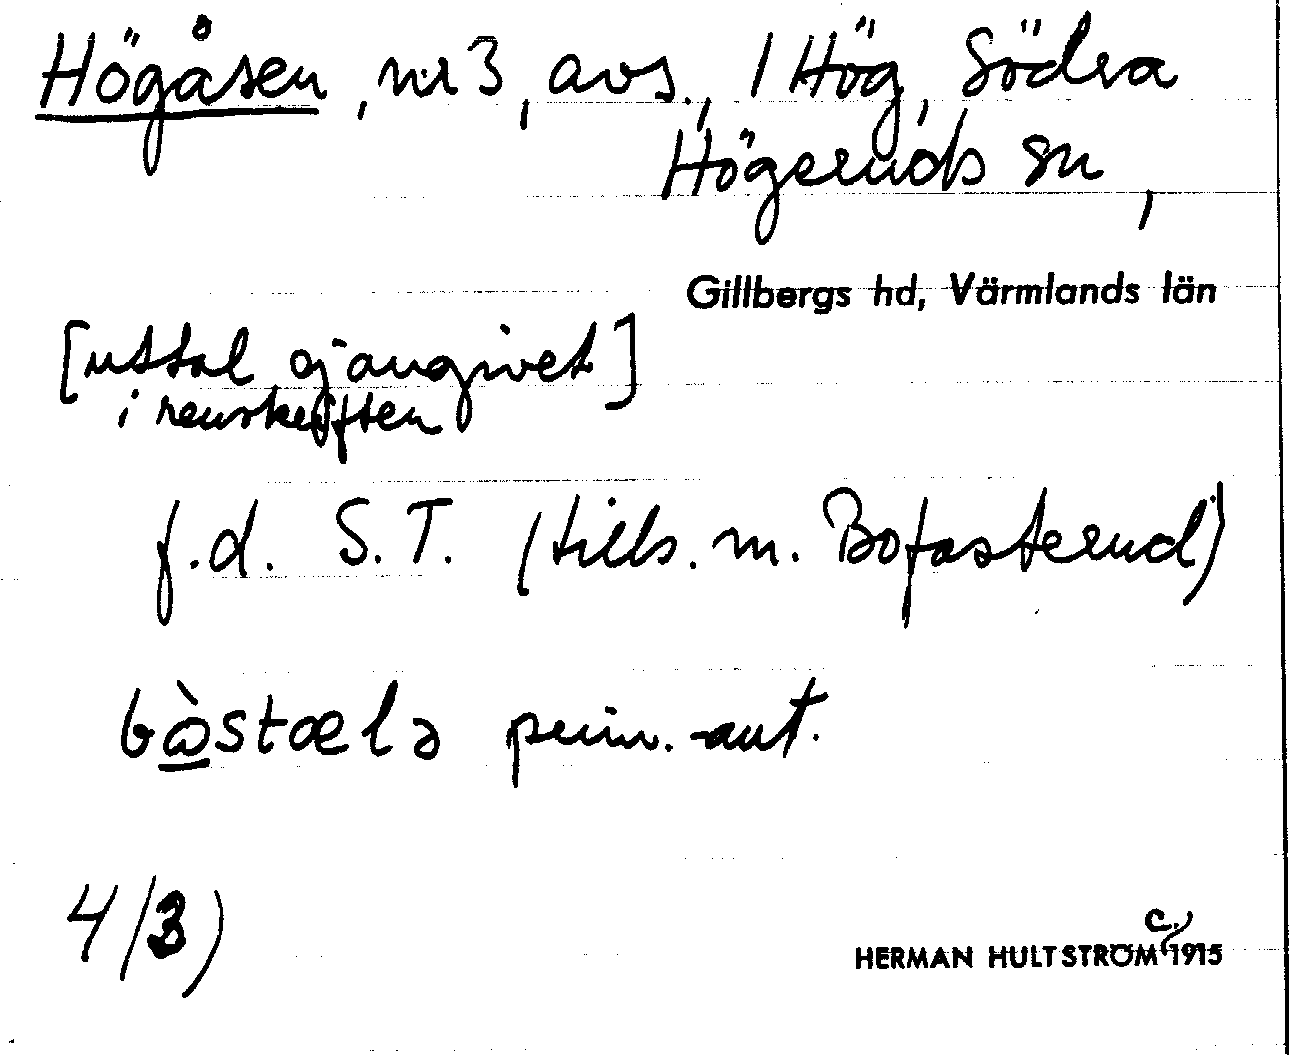 Högåsen, nr 3, avs., 1 Hög, Södra
Högeruds sn,
Gillbergs hd, Värmlands län
[uttal ej angivet]
i renskriften
f.d. S.T. (tills. m. Bofasterud)
prim.-ant.
4/3)
c.
HERMAN HULTSTRÖM 1915